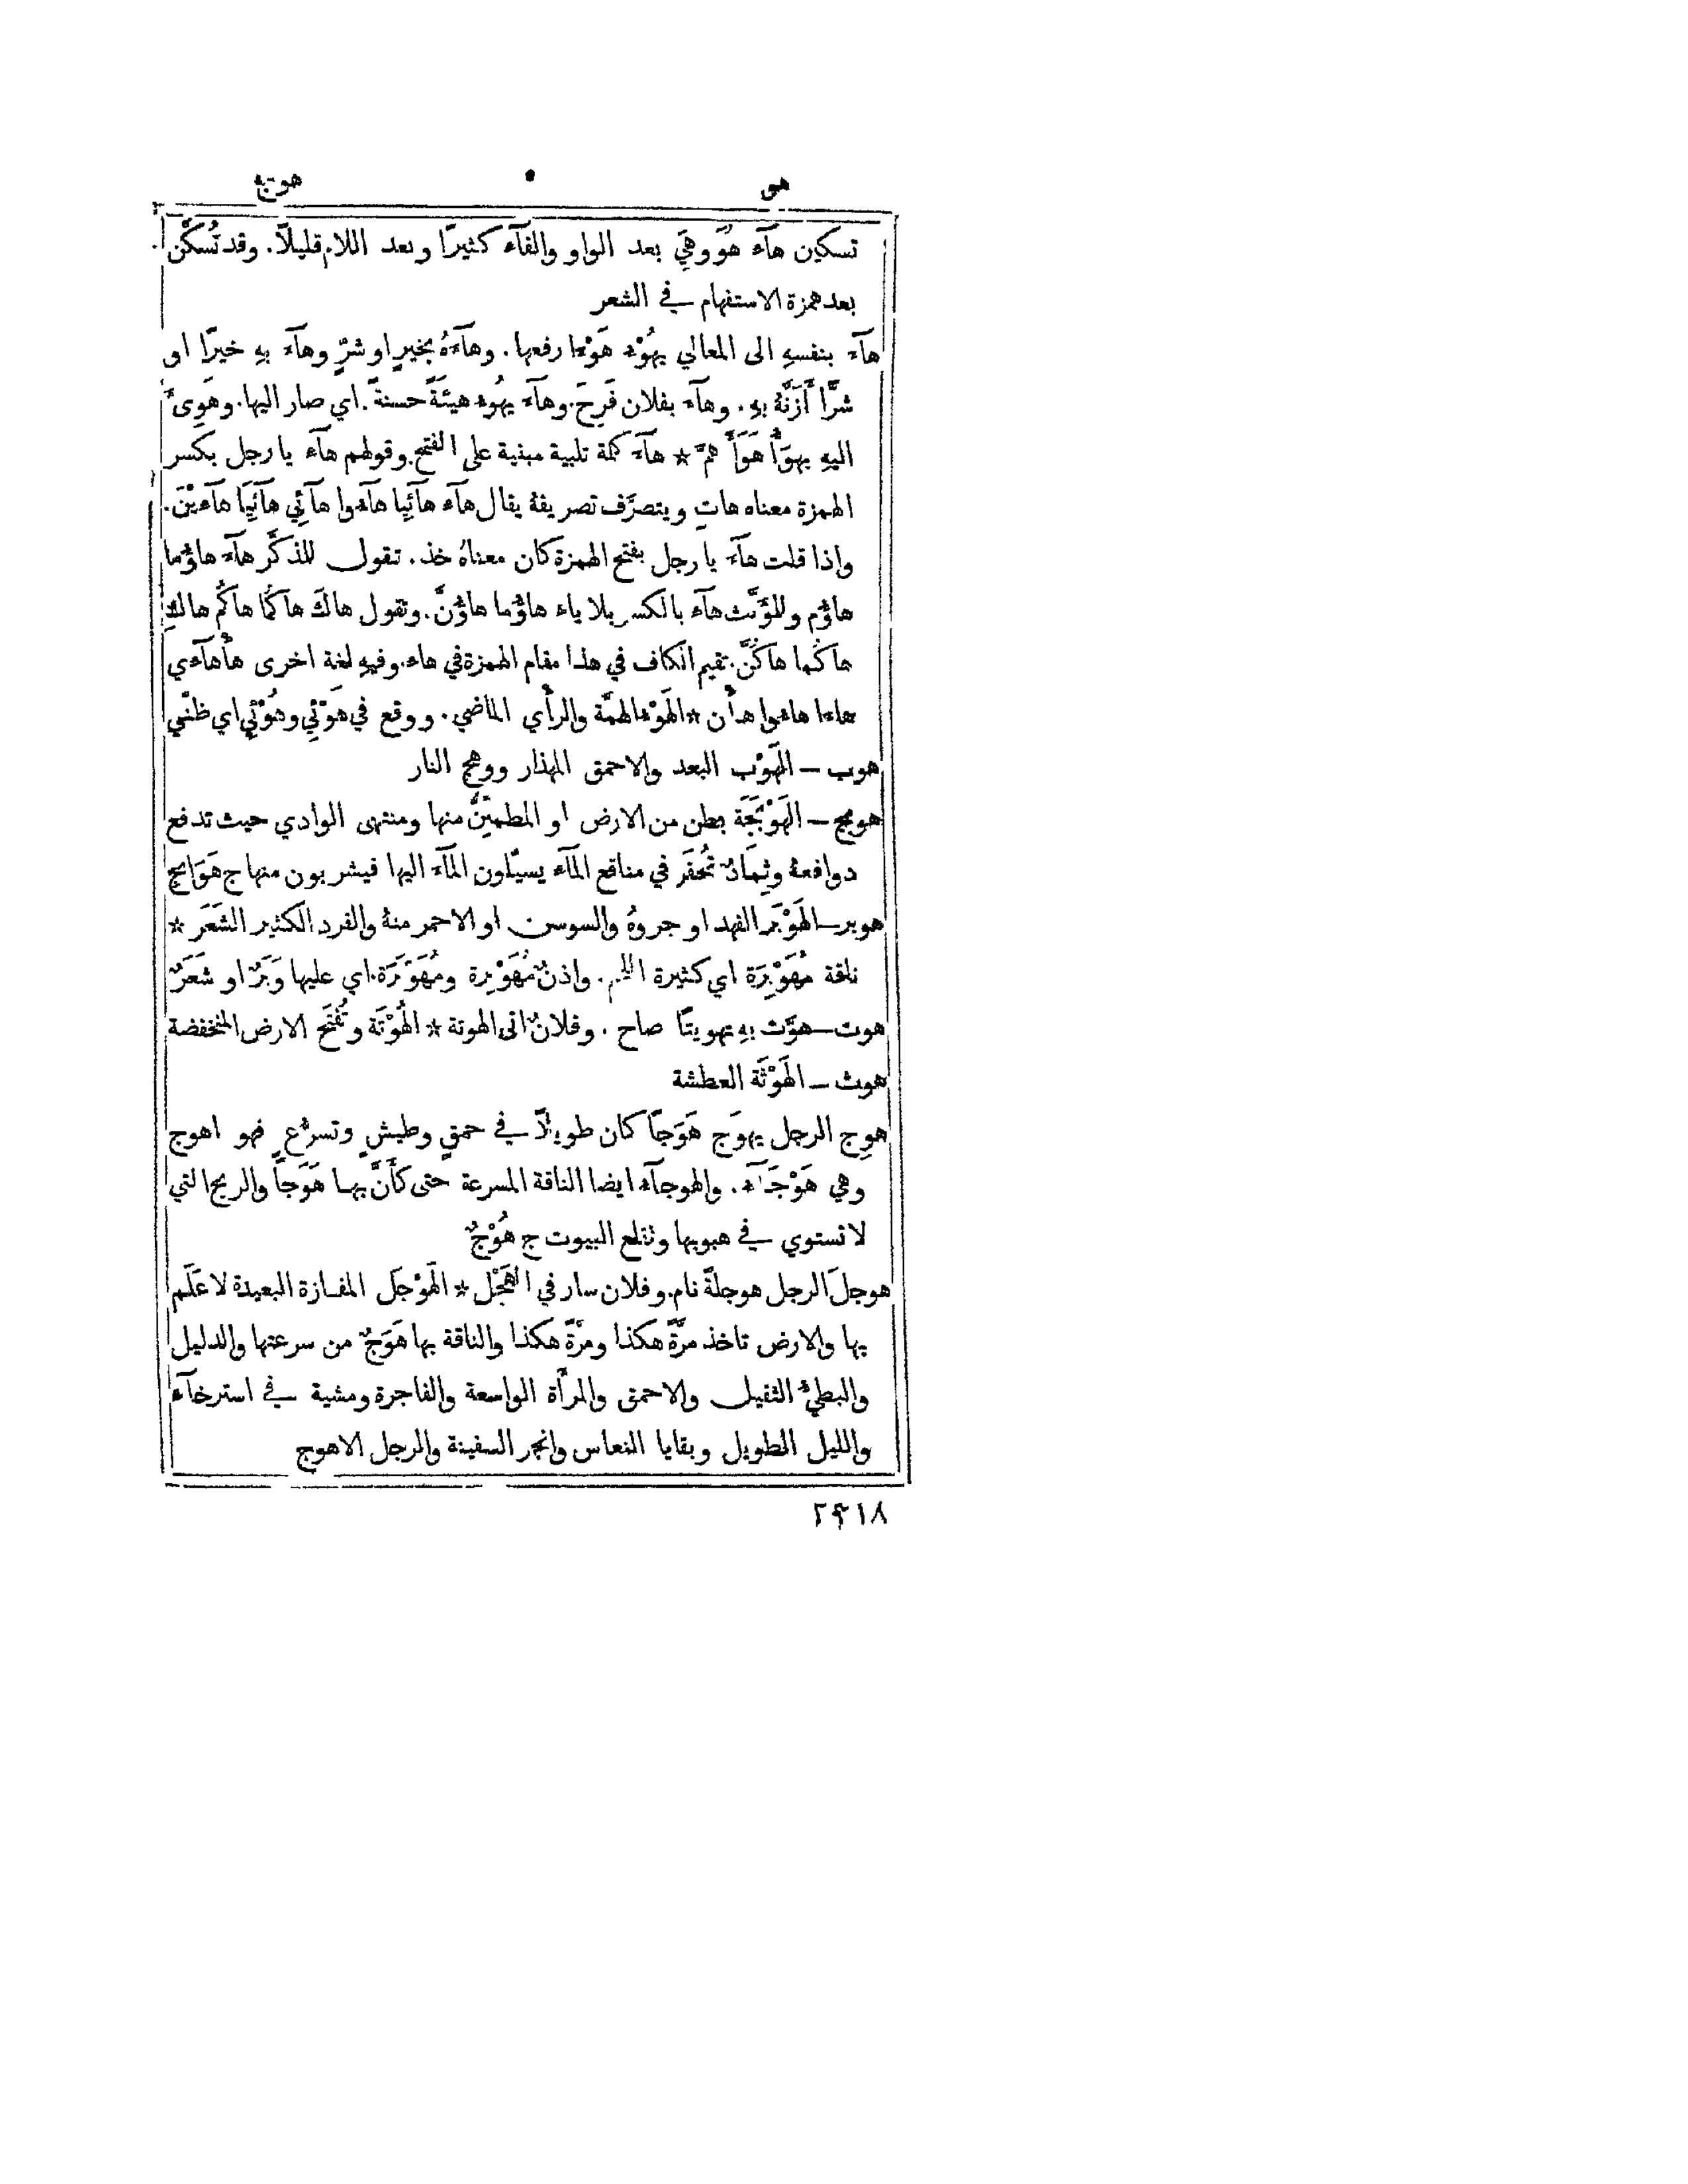 هو • هوج
تسكين هآء هُوَ وهِيَ بعد الواو والفآء كثيرًا وبعد اللام قليلًا. وقد تُسكَّن
بعد همزة الاستفهام في الشعر
هآءَ بنفسهِ الى المعالي يهُوْء هَوْءًا رفعها. وهآءَهُ بخيرٍ او شرٍّ وهآءَ بهِ خيرًا او
شرًّا أَزَنَّهُ بهِ. وهآءَ بفلان فَرِحَ. وهآءَ يهُوء هيئَةً حسنةً. اي صار اليها. وهَوِىَٔ
اليهِ يهوَأُ هَوَأً همَّ * هآءَ كلمة تلبية مبنية على الفتح. وقولهم هآءِ يا رجل بكسر
الهمزة معناه هاتِ ويتصرَّف تصريفهُ يقال هآءِ هآئِيا هآءُوا هآئِي هآئِيَا هآءِيْنَ.
واذا قلت هآءَ يا رجل بفتح الهمزة كان معناهُ خذ. تقول للمذكَّر هآءَ هاؤُما
هاؤُم وللمؤَنَّث هآءِ بالكسر بلا ياء هاؤُما هاؤُنَّ. وتقول هاكَ هاكُمَا هاكُم هاكِ
هاكُما هاكُنَّ. تقيم الكاف في هذا مقام الهمزة في هاء. وفيهِ لغة اخرى هأْ هآءي
هاءا هاءوا هأْن * الهَوْء الهمَّة والرأْي الماضي. ووقع في هَوْئِي وهُوْئِي اي ظنّي
هوب – الهَوْب البعد والاحمق المهذار ووهج النار
هوبج – الهَوْبَجَة بطن من الارض او المطمئِنُّ منها ومنتهى الوادي حيث تدفع
دوافعهُ وثِمَادٌ تُحفَر في مناقع المآء يسيّلون المآء اليها فيشربون منها ج هَوَابِج
هوبر – الهَوْبَر الفهد او جروهُ والسوسن او الاحمر منهُ والقرد الكثير الشَعَر *
ناقة مُهَوْبِرَة اي كثيرة اللحم. واذنٌ مُهَوْبِرة ومُهَوْبَرَة. اي عليها وَبَرٌ او شَعَرٌ
هوت – هوَّت بهِ تهويتًا صاح. وفلانٌ اتى الهوتة * الهُوْتَة وتُفتَح الارض المنخفضة
هوث – الهَوْثَة العطشة
هوِج الرجل يهوَج هَوَجًا كان طويلًا في حمقٍ وطيشٍ وتسرُّعٍ فهو اهوج
وهي هَوْجَآء. والهوجآء ايضا الناقة المسرعة حتى كأَنَّ بها هَوَجًا والريح التي
لا تستوي في هبوبها وتقلع البيوت ج هُوْجٌ
هوجلَ الرجل هوجلةً نام. وفلان سار في الهَجْل * الهَوْجَل المفازة البعيدة لا عَلَم
بها والارض تاخذ مرَّةً هكذا ومرَّةً هكذا والناقة بها هَوَجٌ من سرعتها والدليل
والبطيُّ الثقيل والاحمق والمرأَة الواسعة والفاجرة ومشية في استرخآء
والليل الطويل وبقايا النعاس وانجر السفينة والرجل الاهوج
٢٢١٨